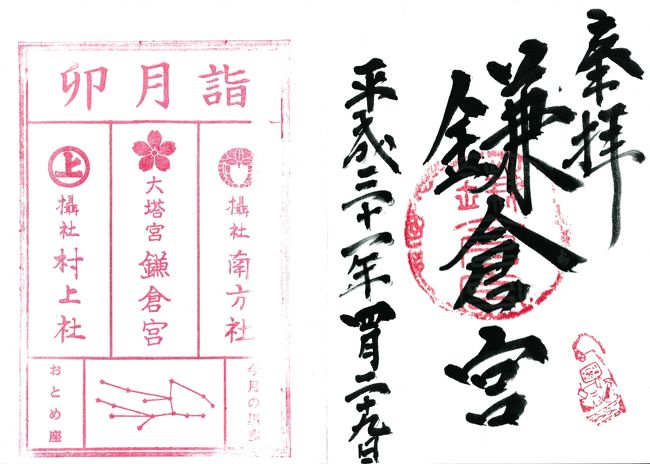 奉拝
鎌倉宮
平成三十一年四月二十九日
卯月詣
攝社 南方社
大塔宮 鎌倉宮
上
攝社 村上社
今月の星座
おとめ座